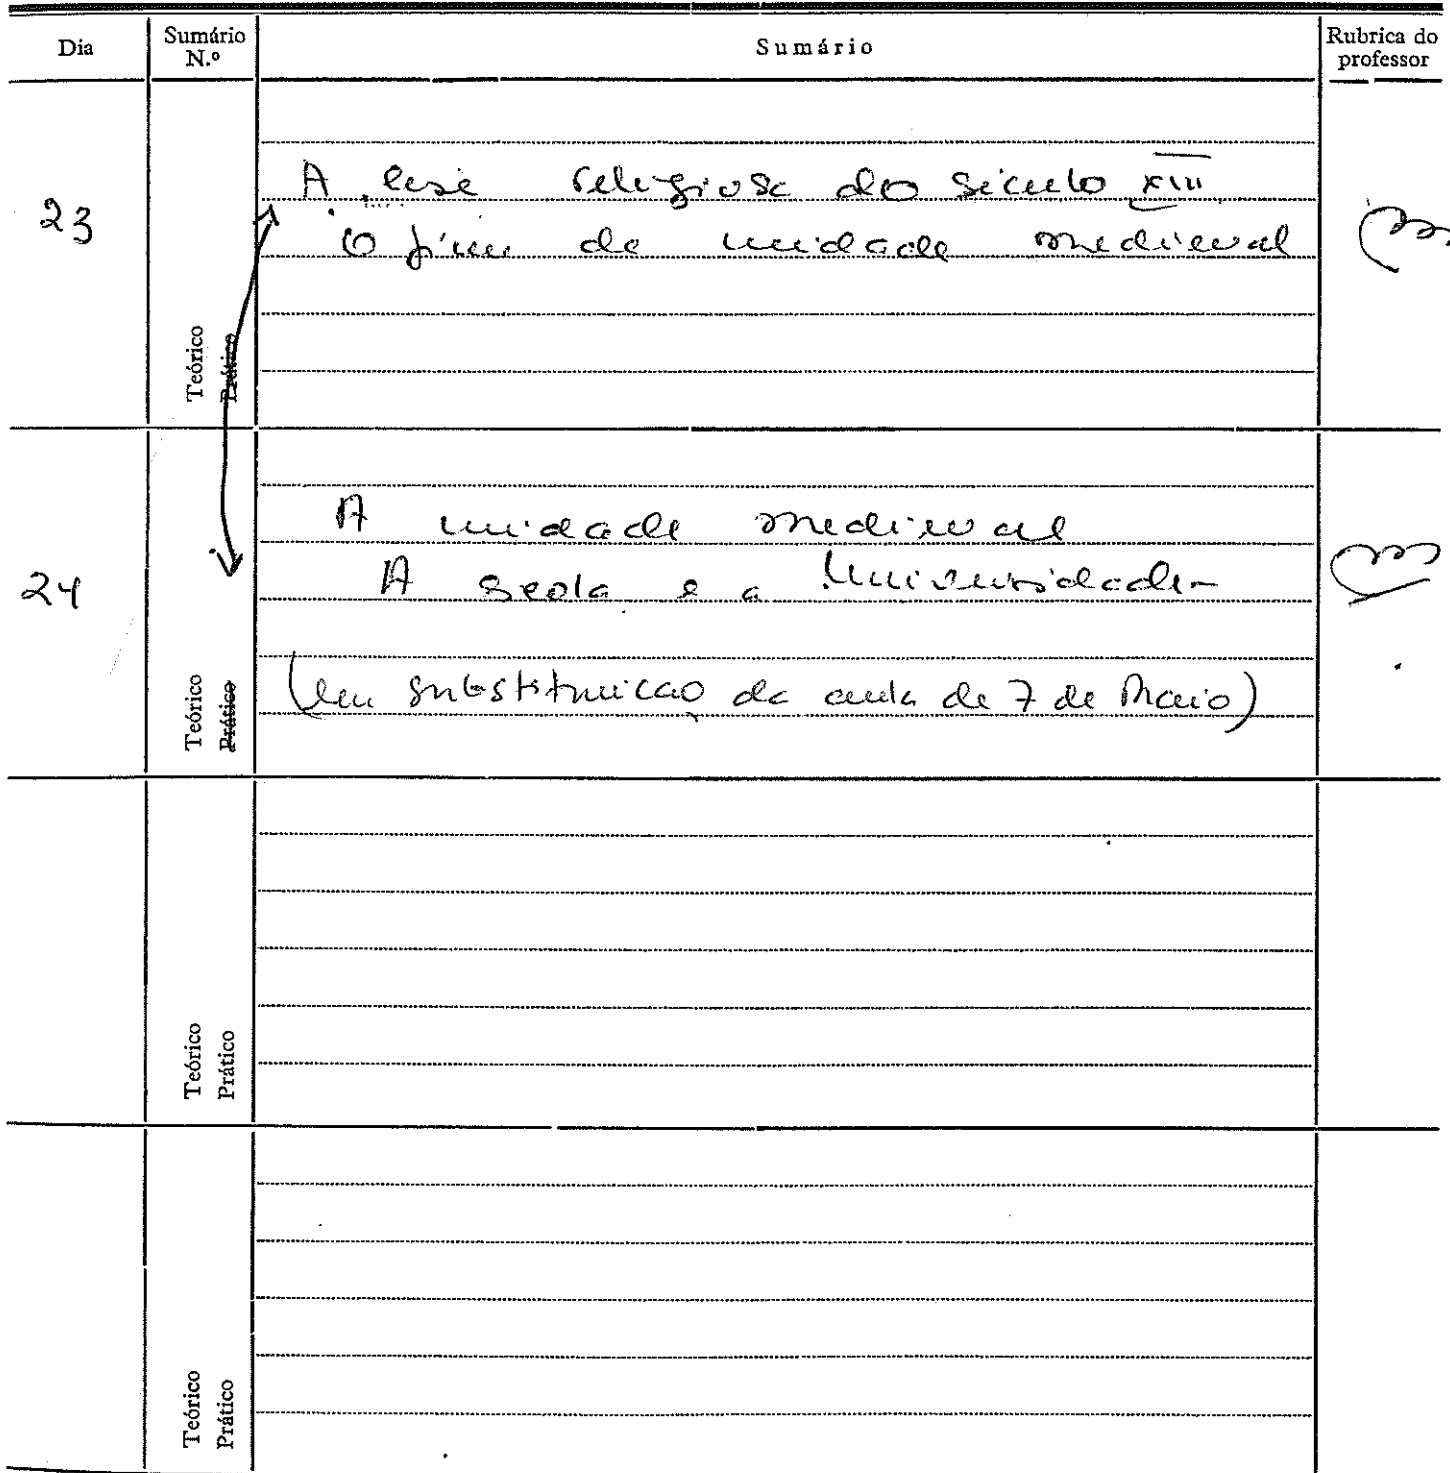 Dia
Sumário N.º
Sumário
Rubrica do professor
23
Teórico
Prático
A crise religiosa do século XIII
O fim da unidade medieval
24
Teórico
Prático
A unidade medieval
A escola e a Universidade
(em substituição da aula de 7 de Maio)
Teórico
Prático
Teórico
Prático